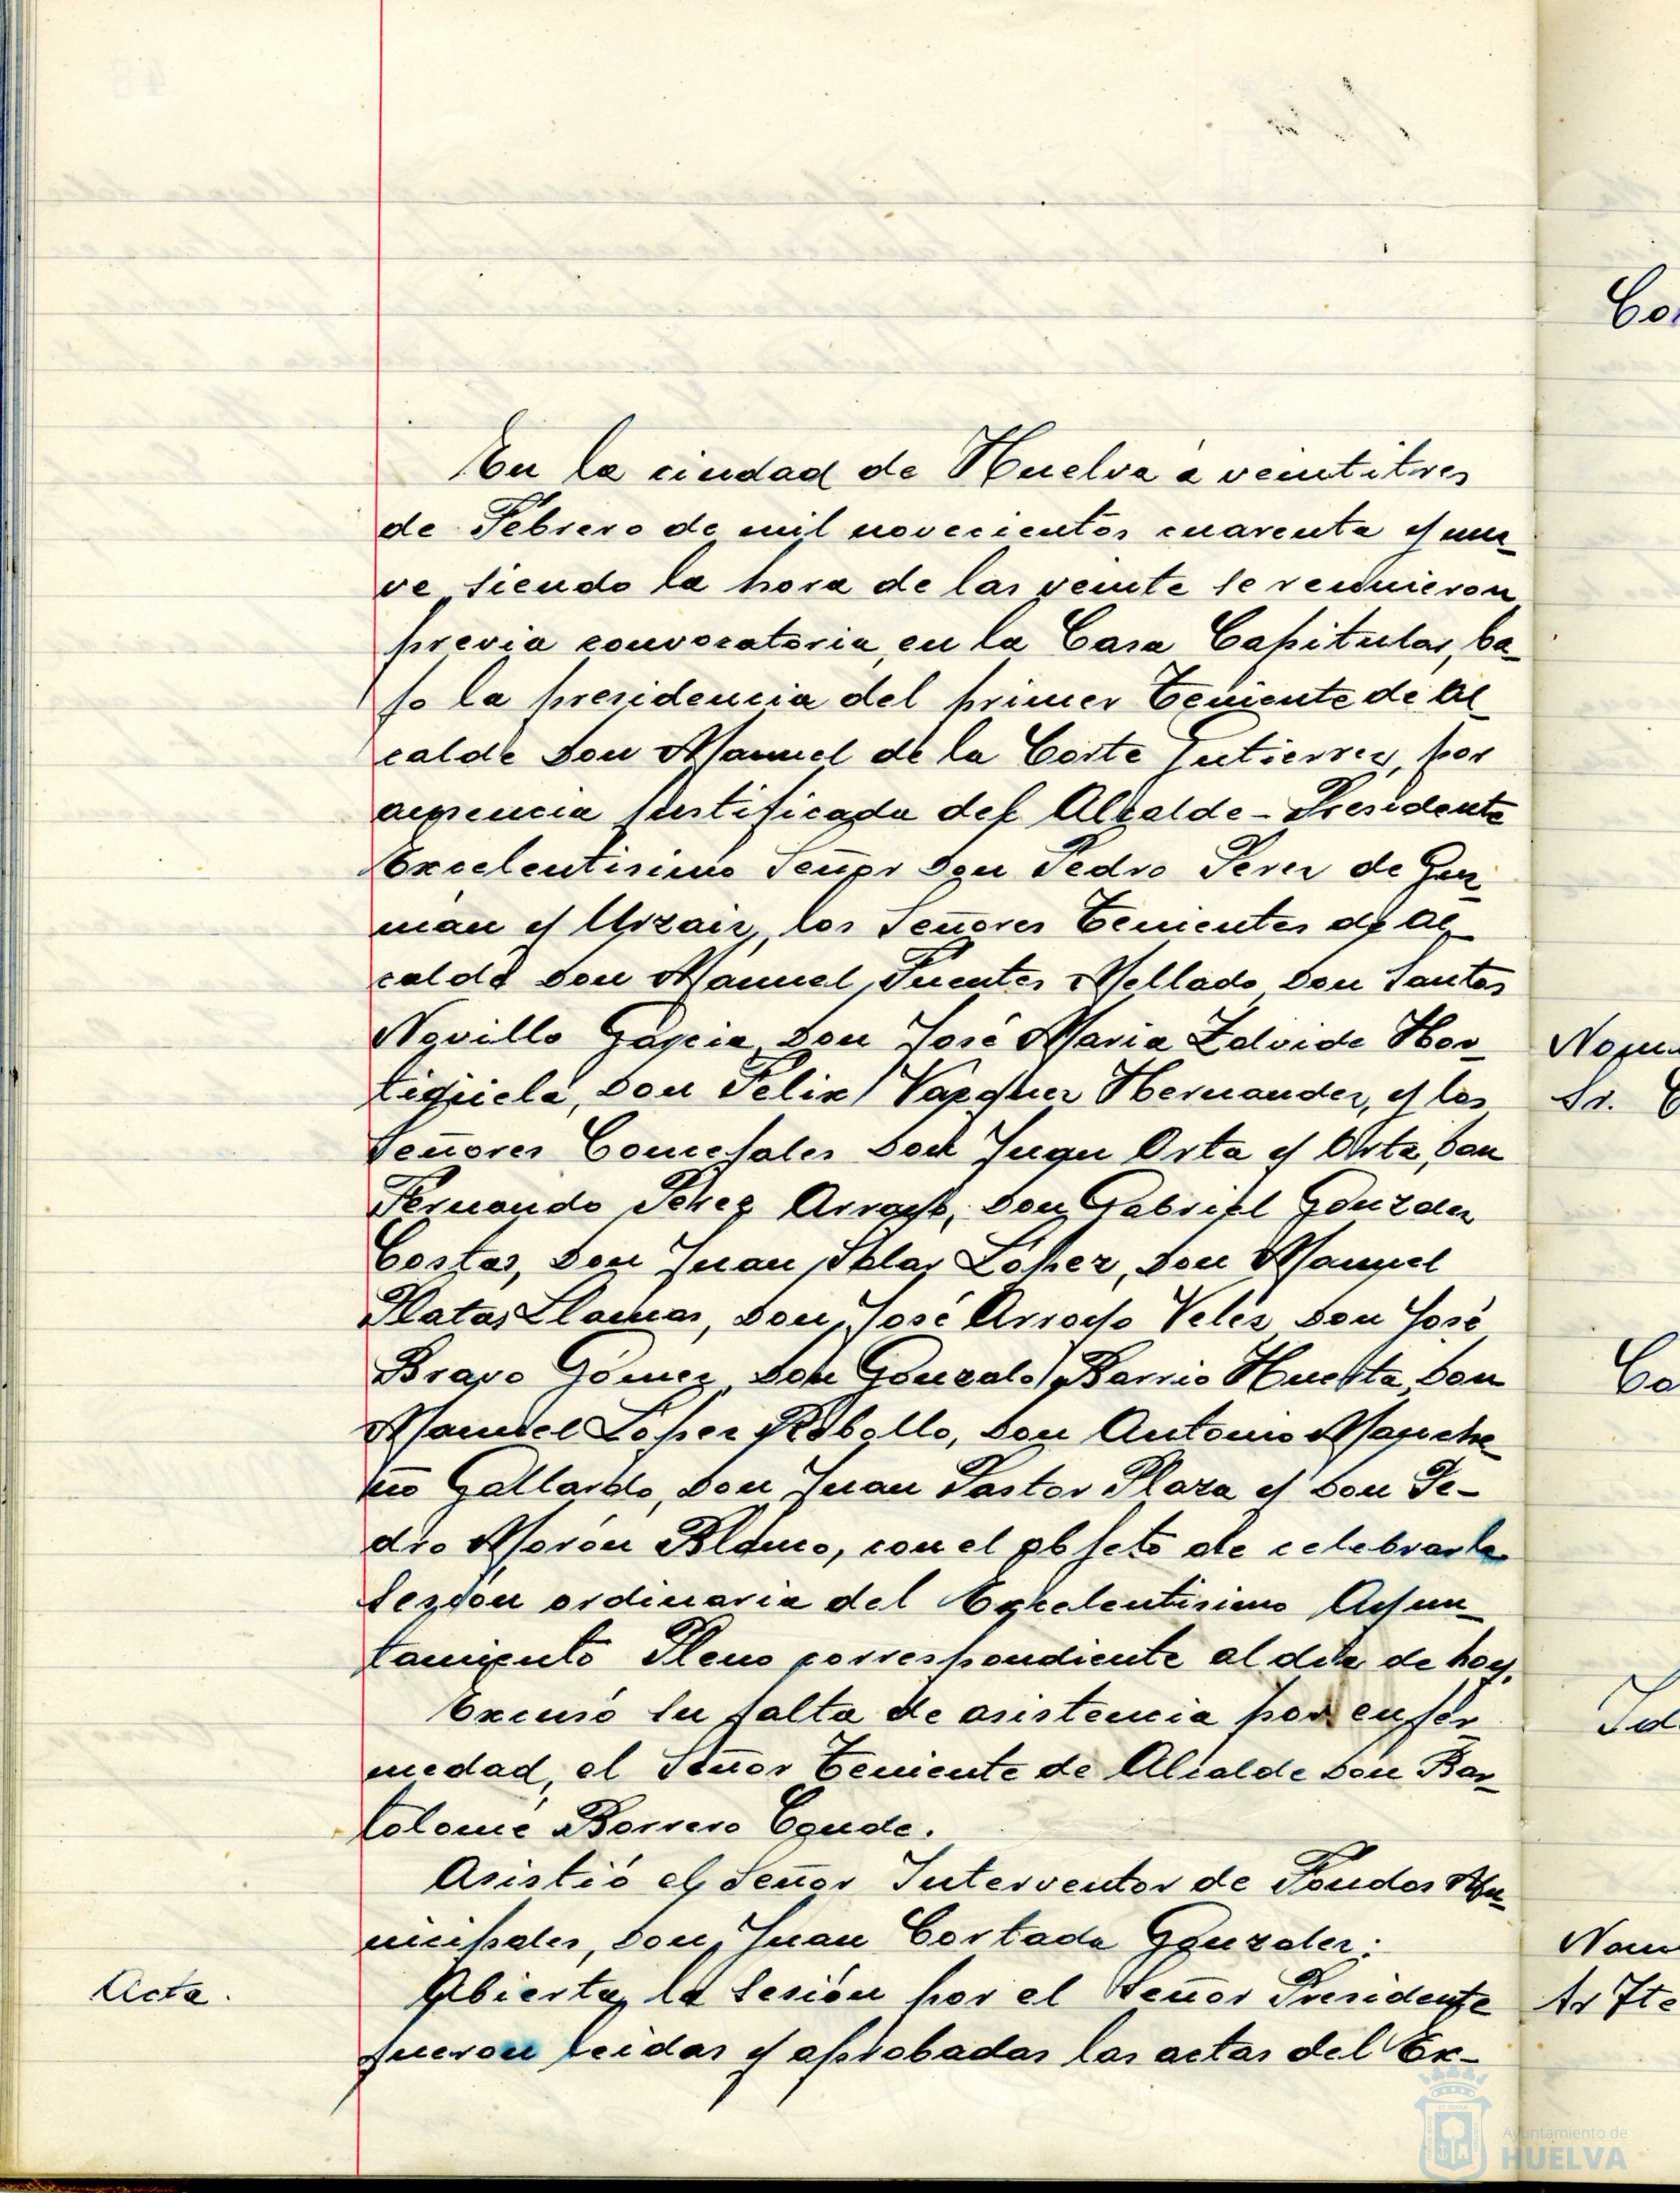 Co
En la ciudad de Huelva a veintitres
de Febrero de mil novecientos cuarenta y nue-
ve, siendo la hora de las veinte se reunieron
previa convocatoria, en la Casa Capitular, ba-
jo la presidencia del primer Teniente de Al-
calde Don Manuel de la Corte Gutierrez, por
ausencia justificada del Alcalde-Presidente
Excelentisimo Señor Don Pedro Perez de Guz-
mán y Urzaiz, los Señores Tenientes de Al-
calde Don Manuel Fuentes Mellado, Don Santos
Novillo García, Don José María Zalvide Hor-
tigüela, Don Felix Vazquez Hernandez, y los
Señores Concejales Don Juan Orta y Orta, Don
Fernando Perez Arroyo, Don Gabriel Gonzalez
Costas, Don Juan Salas López, Don Manuel
Platas Llamas, Don José Arroyo Velez, Don José
Bravo Gómez, Don Gonzalo Barrio Huerta, Don
Manuel López Rebollo, Don Antonio Manche-
ño Gallardo, Don Juan Pastor Plaza y Don Pe-
dro Morón Blanco, con el objeto de celebrar la
sesión ordinaria del Excelentisimo Ayun-
tamiento Pleno correspondiente al día de hoy.
Excusó su falta de asistencia por enfer-
medad, el Señor Teniente de Alcalde Don Bar-
tolomé Borrero Conde.
Asistió el Señor Interventor de Fondos Mu-
nicipales, Don Juan Cortada Gonzalez.
Acta.
Abierta la sesión por el Señor Presidente
fueron leidas y aprobadas las actas del Ex-
Sr.
Co
Ayuntamiento de
HUELVA